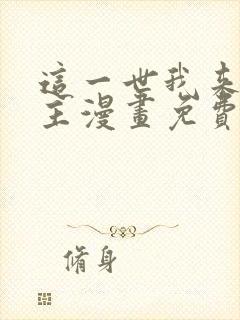 這一世我來
主漫畫免費
脩身